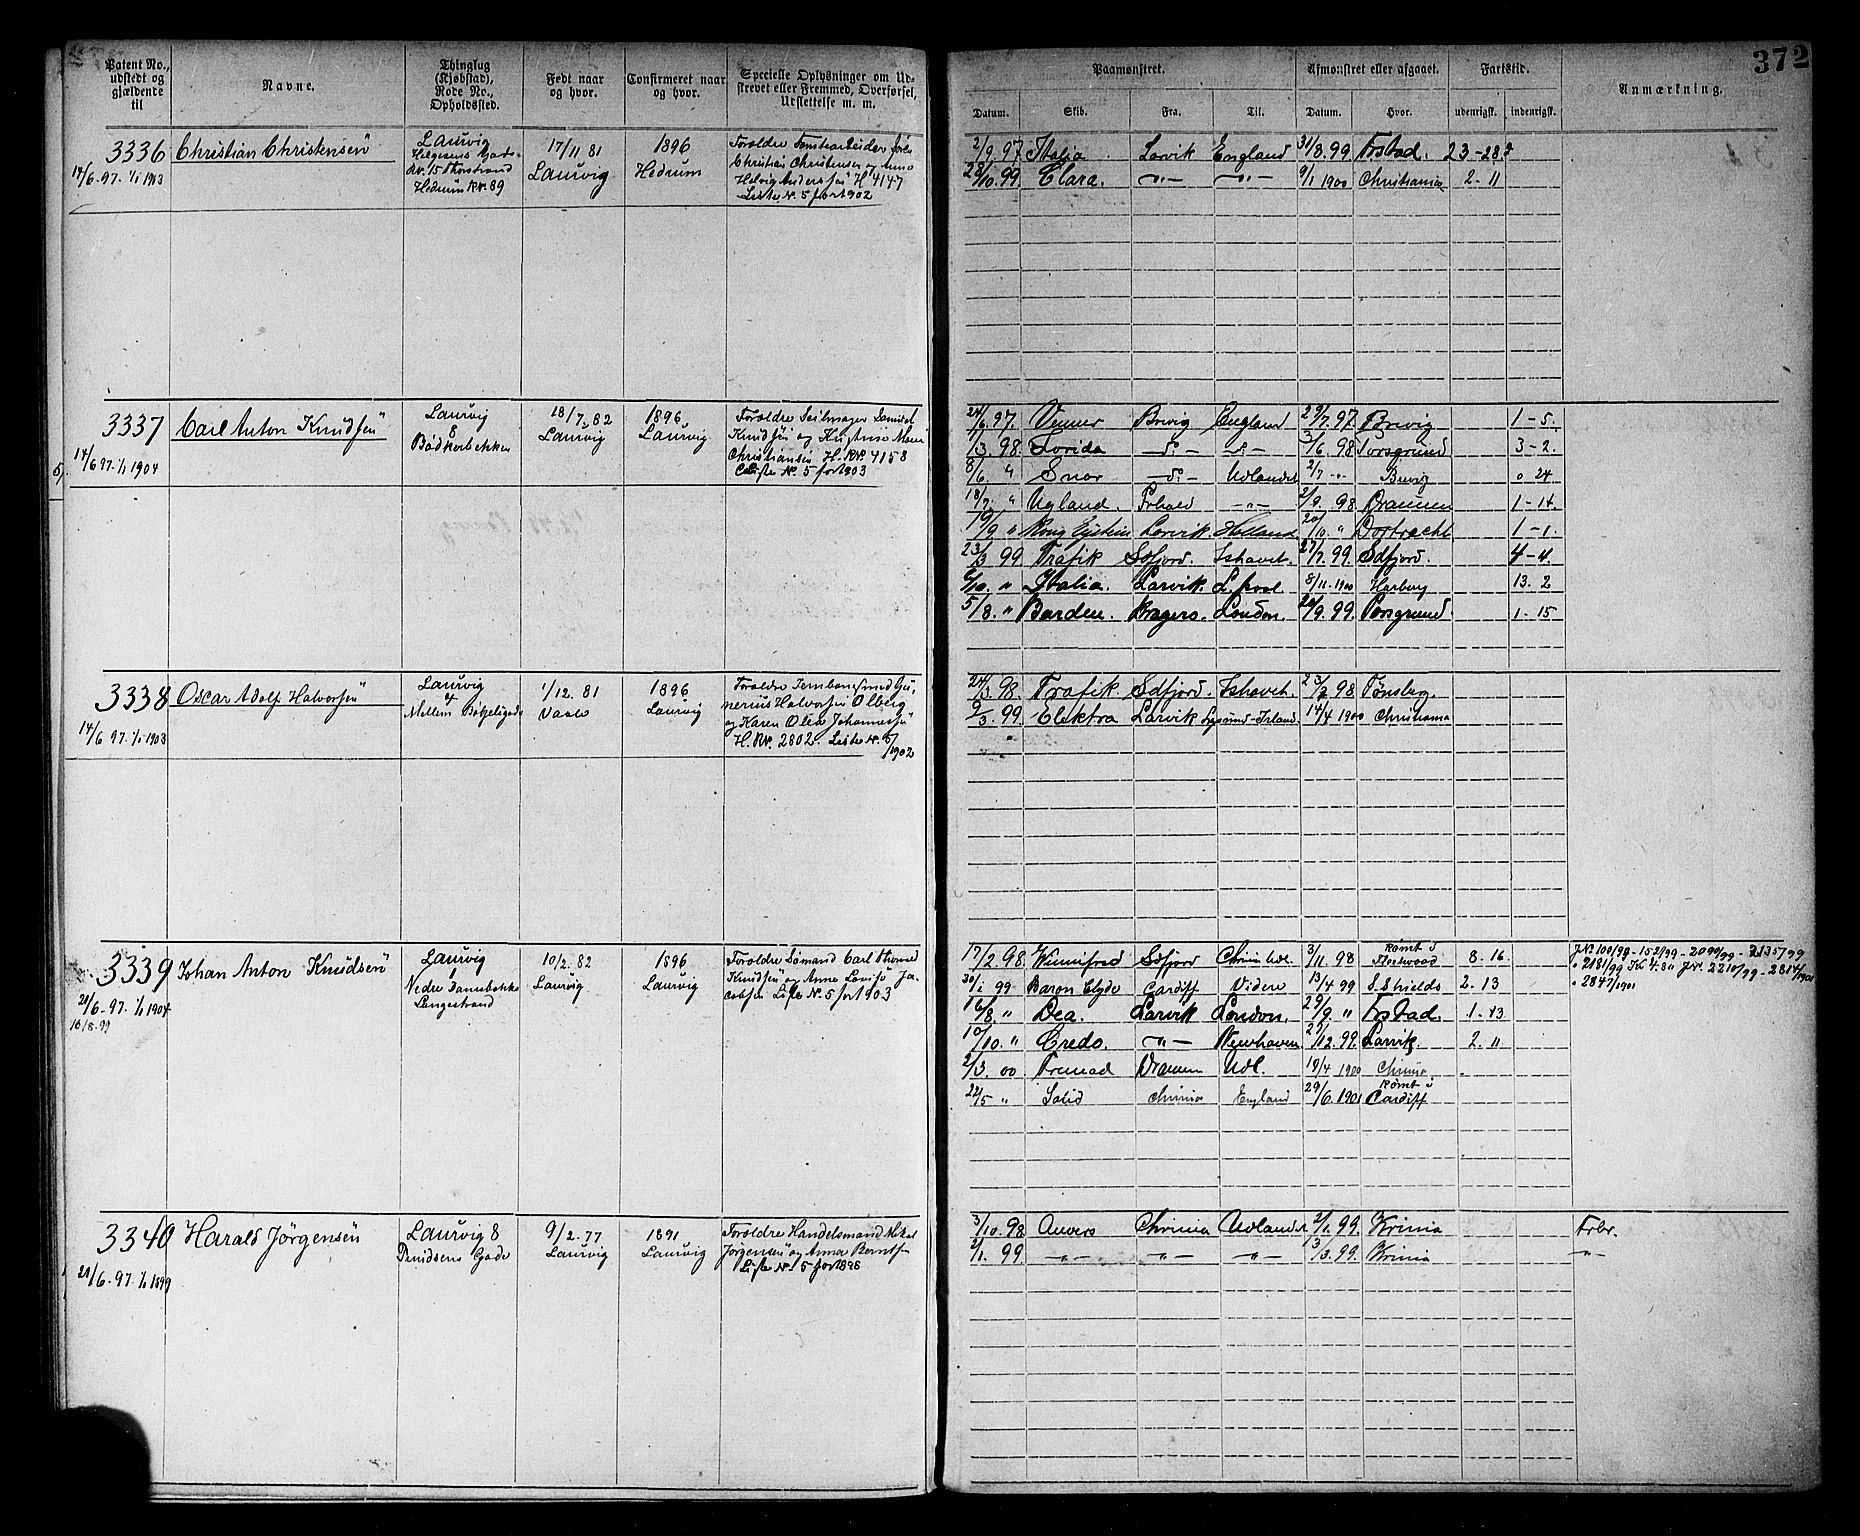 372
Patent No., udstedt og gjældende til
Navne.
Thinglag (Kjøbstad), Rode No., Opholdssted.
Født naar og hvor.
Confirmeret naar og hvor.
Specielle Oplysninger om Udskrevet eller Fremmed, Overførsel, Udslettelse m. m.
Paamønstret.
Afmønstret eller afgaaet.
Fartstid.
Anmærkning.
Datum. Skib. Fra. Til. Datum. Hvor. udenrigsk. indenrigsk.
3336 Christian Christensen
14/6 97. 1/1 1903
Laurvig
Helgesens Gade
Nr. 15 Thorstrand
Hedrum Nr. 89
17/11 81
Laurvig
1896
Hedrum
Forældre
Christian Christensen og Anne
Helvig Andersen H 4147
Liste N. 5 for 1902
2/9 97 Italia Larvik England 31/8 99 Frstad. 23-28
28/10 99. Clara. —"— —"— 9/1 1900 Christiania 2. 11
3337 Carl Anton Knudsen
14/6 97. 1/1 1904
Laurvig
8
Bødkerbakken
18/7 82
Laurvig
1896
Laurvig
Forældre Seilmager
Knudsen og
Christiansen H. Nr. 4158
Liste N. 5 for 1903
24/6 97. Venner Brevig England 29/7 97. Brevig 1-5.
1/3 98. Lovida —d:— —d:— 3/6 98 Porsgrund 3-2.
8/6 " Snar —d:— Udlandet 2/7 -"- Brevig 0 24
18/7 " Ugland. Frhald —"— 2/9 98 Drammen 1-14.
19/9 " Kong Eystein Larvik. Holland 20/10 " Dortrecht 1-1.
23/3 99 Trafik Sdfjord. Ishavet. 27/7 99. Sdfjord. 4-4.
6/10. " Italia. Larvik. L.pool 8/11. 1900 Harburg 13. 2
5/8. " Barden. Kragerø. London. 20/9. 99. Porsgrund 1-15
3338 Oscar Adolf Halvorsen
14/6 97. 1/1 1903
Laurvig
4
Mellem Bøkeligade
1/12. 81
Vaale
1896
Laurvig
Forældre Jernbanesmed Gunerius Halvorsen Olberg
og Karen Olea Johannesen
H. Nr. 2802. Liste N. 5/1902
24/3 98. Trafik Sdfjord. Ishavet. 23/7 98. Tønsberg.
9/3. 99. Elektra Larvik Irland. 14/4 1900 Christiania
3339 Johan Anton Knudsen
21/6. 97. 1/1 1904
16/8. 99
Laurvig
1
Nedre Damebakke
Langestrand
10/2. 82
Laurvig
1896
Laurvig
Forældre Sømand Carl
Knudsen og Anne Lovise Jacobsen Liste N. 5 for 1903
17/2. 98. Winnifred Sdfjord Chrnia Udl. 3/11. 98 Rømt i Fleetwood 8. 16
30/1 99 Baron Clyde Cardiff Videre 13/4 99 S. Shields 2. 13
16/8. " Dea. Larvik London. 29/9. " Frstad. 1. 13
10/10. " Credo. —"— Newhaven 21/12. 99. Larvik. 2. 11
2/3. 00 Drammen Udl. 19/4 1900 Chrnia
22/5 " Solid Chrnia England 29/6. 1901 Rømt i Cardiff
J.Nr. 100/99 - 152/99 - 2099/99 - 2135/99
" 2181/99 J.Nr. 2210/99 - 2814/1901
" 2847/1901
3340 Harald Jörgensen
21/6. 97. 1/1 1899
Laurvig 8
Gade
9/2. 77
Laurvig
1891
Laurvig
Forældre Handelsmand
Jørgensen og Anna Berntsen
Liste N. 5 for 1898
3/10. 98 Anvers Chrnia Udlandet 2/1. 99. Krnia Frbr.
2/1. 99 —"— —"— —"— 3/3. 99. Krnia —"—